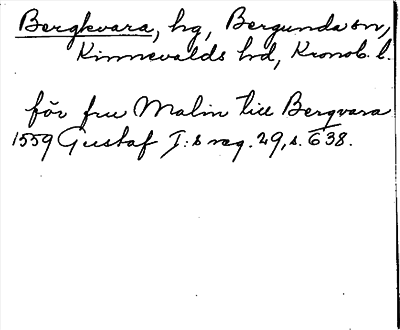 Bergkvara, hg, Bergunda sn,
Kinnevalds hd, Kronob. l.
för fru Malin till Bergvara
1559 Gustaf I:s reg. 29, s. 638.